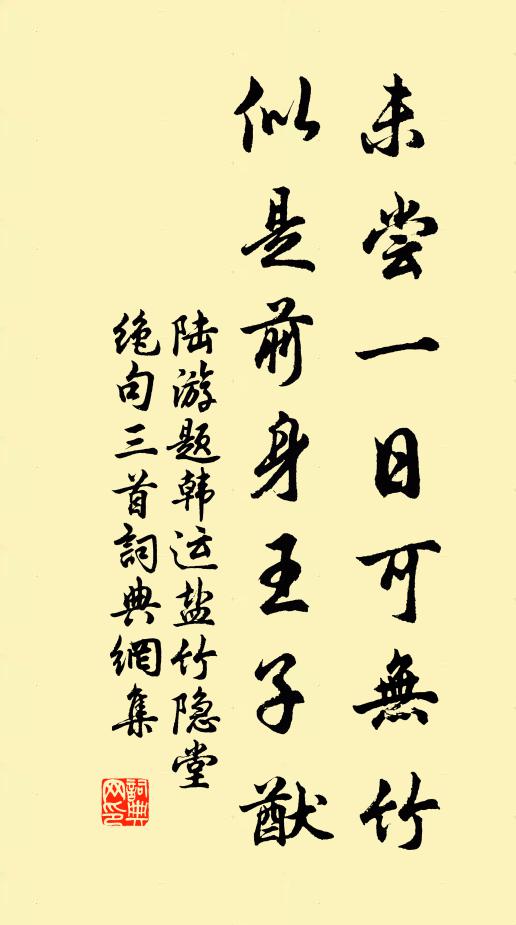 未尝一日可無竹
似是前身王子猷
陆游题韩运盐竹隐堂
绝句三首詞典網集
詞典
网印